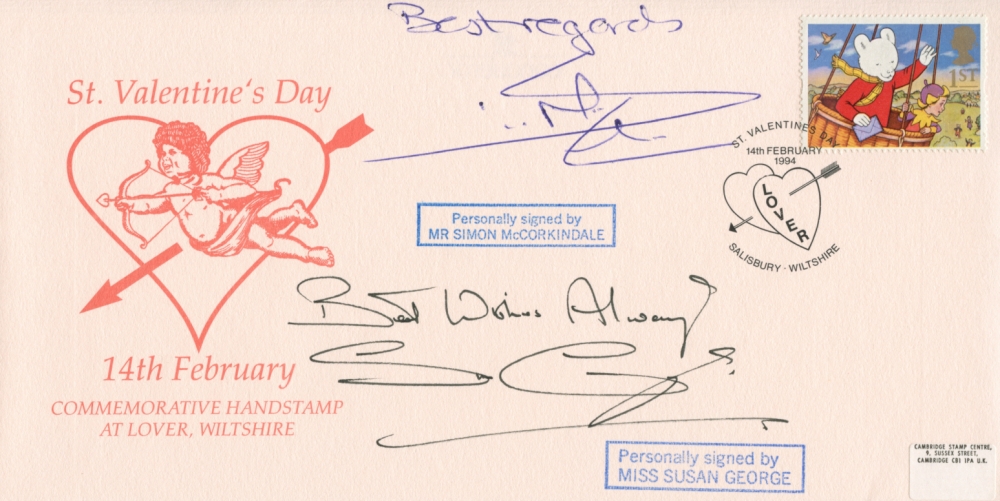 Best regards
St. Valentine's Day
1ST
ST. VALENTINES DAY
14th FEBRUARY
1994
LOVER
SALISBURY · WILTSHIRE
Personally signed by
MR SIMON McCORKINDALE
Best Wishes Always
14th February
COMMEMORATIVE HANDSTAMP
AT LOVER, WILTSHIRE
Personally signed by
MISS SUSAN GEORGE
CAMBRIDGE STAMP CENTRE,
9, SUSSEX STREET,
CAMBRIDGE CB1 1PA U.K.